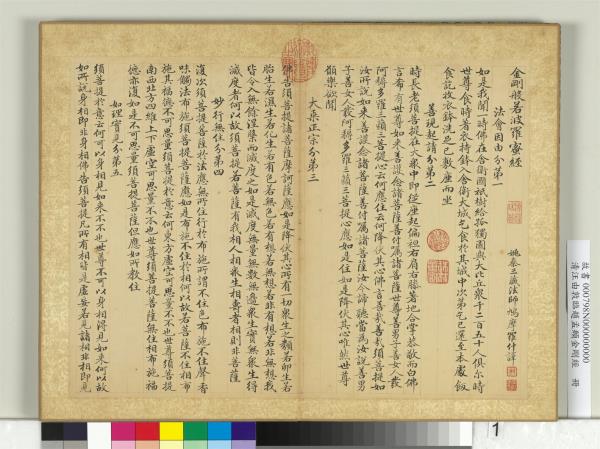 金剛般若波羅蜜經
姚秦三藏法師鳩摩羅什譯
法會因由分第一
如是我聞一時佛在舍衛國祇樹給孤獨園與大比丘眾千二百五十人俱尒時
世尊食時著衣持鉢入舍衛大城乞食於其城中次第乞已還至本處飯
食訖收衣鉢洗足已敷座而坐
善現起請分第二
時長老須菩提在大眾中即從座起偏袒右肩右膝著地合掌恭敬而白佛
言希有世尊如來善護念諸菩薩善付囑諸菩薩世尊善男子善女人發
阿耨多羅三藐三菩提心云何應住云何降伏其心佛言善哉善哉須菩提如
汝所說如來善護念諸菩薩善付囑諸菩薩汝今諦聽當為汝說善男
子善女人發阿耨多羅三藐三菩提心應如是住如是降伏其心唯然世尊
願樂欲聞
大乘正宗分第三
佛告須菩提諸菩薩摩訶薩應如是降伏其心所有一切眾生之類若卵生若
胎生若濕生若化生若有色若無色若有想若無想若非有想非無想我
皆令入無餘涅槃而滅度之如是滅度無量無數無邊眾生實無眾生得
滅度者何以故須菩提若菩薩有我相人相眾生相壽者相則非菩薩
妙行無住分第四
復次須菩提菩薩於法應無所住行於布施所謂不住色布施不住聲香
味觸法布施須菩提菩薩應如是布施不住於相何以故若菩薩不住相布
施其福德不可思量須菩提於意云何東方虛空可思量不不也世尊須菩提
南西北方四維上下虛空可思量不不也世尊須菩提菩薩無住相布施福
德亦復如是不可思量須菩提菩薩但應如所教住
如理實見分第五
須菩提於意云何可以身相見如來不不也世尊不可以身相得見如來何以故
如所說身相即非身相佛告須菩提凡所有相皆是虛妄若見諸相非相即見
故書 000798N000000000
清汪由敦臨趙孟頫金剛經 冊
1